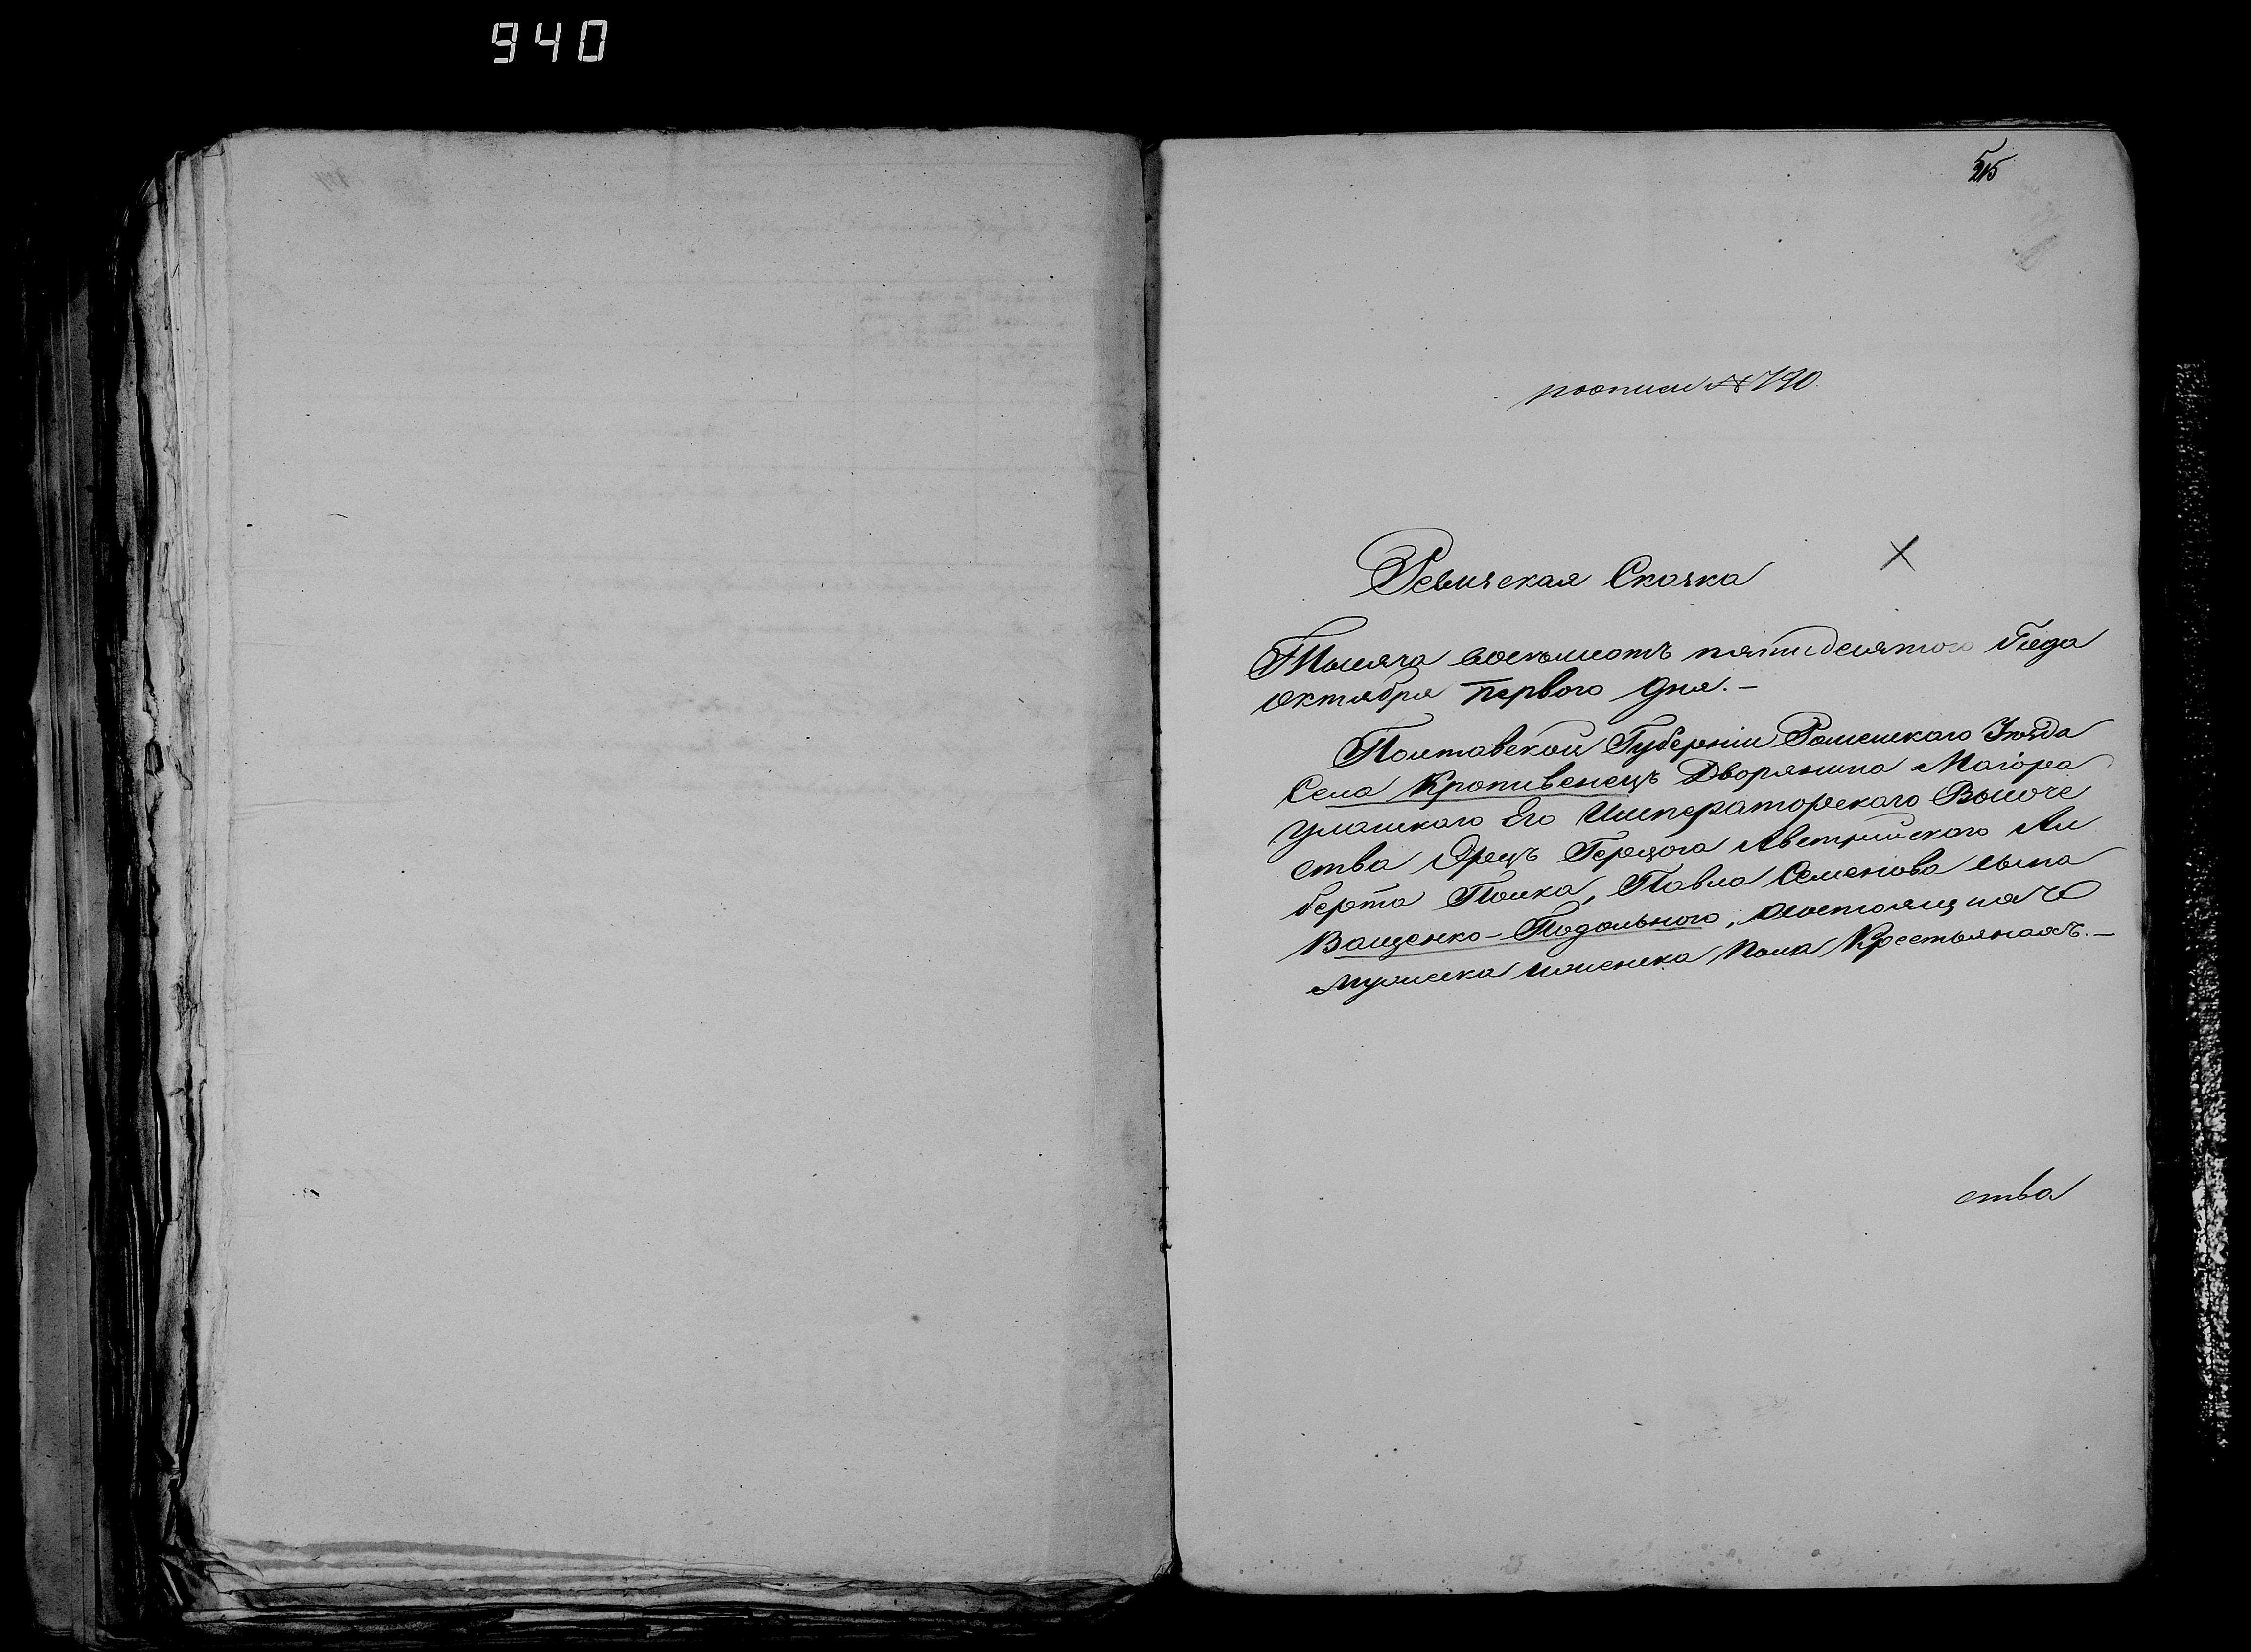 940
515
росписи № 790.
Ревизская Сказка
Тысяча восемьсотъ пятидесятого Года
Октября Первого Дня. –
Полтавской Губерніи Роменского Уѣзда
Села Кропивенецъ Дворянина Маіора
Уланского Его Императорского Высоче
ства Эрцъ Герцога Австрийского Ал
берта Полка, Павла Семенова сына
Ващенко-Подольного, о состоящихъ
мужеска и женска пола Крестьянахъ. –
ства